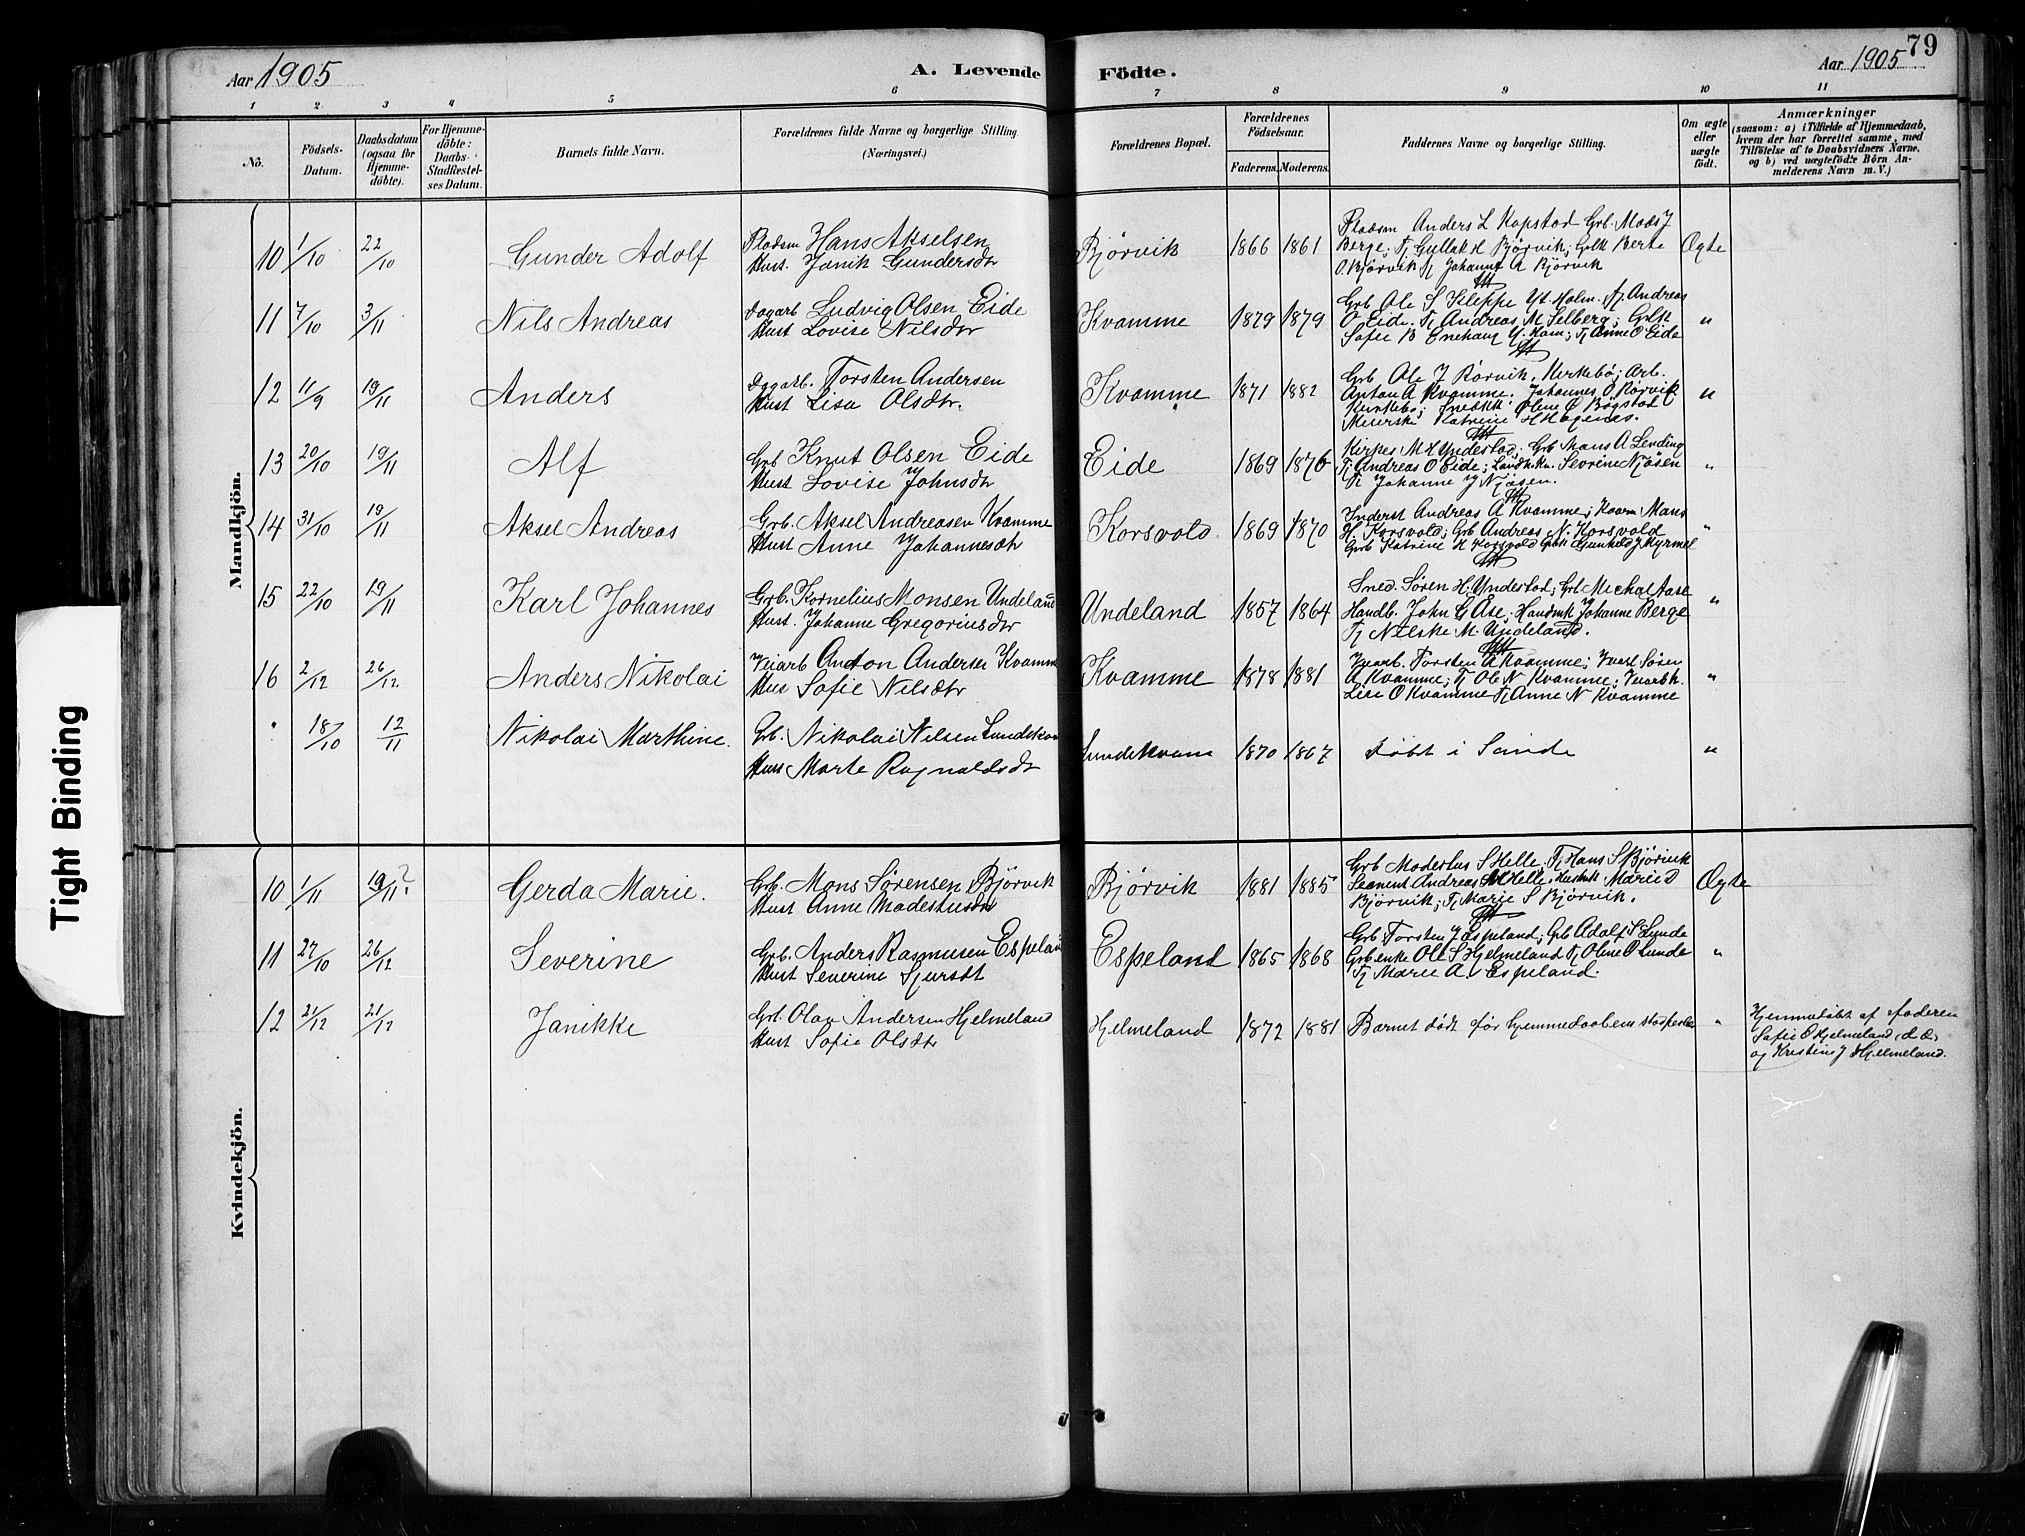 79
Aar 1905
A. Levende Födte.
Aar 1905
1 2 3 4 5 6 7 8 9 10 11
Nö.
Födsels-Datum.
Daabsdatum (ogsaa for Hjemme-döbte).
For Hjemme-döbte: Daabs-Stadfæstel-ses Datum.
Barnets fulde Navn.
Forældrenes fulde Navne og borgerlige Stilling
(Næringsvei.)
Forældrenes Bopæl.
Forældrenes Födselsaar.
Faderens. Moderens.
Faddernes Navne og borgerlige Stilling.
Om ægte eller uægte födt.
Anmærkninger
(saasom: a) i Tilfælde af Hjemmedaab, hvem der har forrettet samme, med Tilföielse af to Daabsvidners Navne, og b) ved uægtefödte Börn An-melderens Navn m. V.)
Mandkjön.
10 1/10 22/10 Gunder Adolf Pladsm Hans Akselsen Bjørvik 1866 1861 Pladsm Anders L Kopstad Grb. Mads J Ægte
Hust. Janik Gundersdtr Berge; Tj Gullak H Bjørvik; Gplk Berte
O. Bjørvik Tj Johanne A Bjørvik
11 7/10 3/11 Nils Andreas Dagarb Ludvig Olsen Eide Kvamme 1879 1879 Grb Ole S Kleppe Yt. Holm. Tj. Andreas "
Hust Lovise Nilsdtr O Eide. Tj Andreas M Selberg;
Sofie B Tj Anne O Eide
12 11/9 19/11 Anders Dagarb. Torsten Andersen Kvamme 1871 1882 Grb Ole J Rørvik. Kirkebø; Arb. "
Hust Lisa Olsdtr. Anton A Kvamme. Johannes O Rørvik
Kirkebø; Oline O Bøgstad
Katrine
13 20/10 19/11 Alf Grb Knut Olsen Eide Eide 1869 1876 Undestad; Grb Mans A Lending "
Hust Lovise Johnsdtr Tj Andreas O Eide; Landh.kn. Severine Njøsen
Johanne J Njøsen.
14 31/10 19/11 Aksel Andreas Grb. Aksel Andreasen Kvamme Korsvold 1869 1870 Inderst Andreas A Kvamme; Mans "
Hust Anne Johannesdtr H. Korsvold; Grb Andreas N. Korsvold
Grb Katrine H Korsvold Gunhild J Myrmel
15 22/10 19/11 Karl Johannes Grb. Kornelius Monsen Undeland Undeland 1857 1864 Sned. Søren H. Undestad; Grb Michal Aase "
Hust. Johanne Gregoriusdtr Handb. John G Ase; Johanne Berge
Tj Nilske M. Undeland.
16 2/12 26/12 Anders Nikolai Veiarb Anton Andersen Kvamme Kvamme 1878 1881 Veiarb. Torsten A Kvamme; Søren "
Hus Sofie Nilsdtr A Kvamme; Tj Ole N Kvamme;
Lise O Kvamme Tj Anne N Kvamme
" 18/10 12/11 Nikolai Marthine. Grb. Nikolai Nilsen Sundekvam Sundekvam 1870 1867 Døbt i Sande "
Hust Marte Ragnaldsdtr
Kvindekjön.
10 1/11 19/11? Gerda Marie. Grb. Mons Sørensen Bjørvik Bjørvik 1881 1885 Grb Modestus S Helle; Tj Hans S Bjørvik Ægte
Hust Anne Modestusdtr Andreas M Helle; Marie
Bjørvik; Tj Marie S Bjørvik.
11 27/10 26/12 Severine Grb. Anders Rasmusen Espeland Espeland 1865 1868 Grb Torsten J Espeland; Grb Adolf S Lunde "
Hust Severine Sjursdt Grbenke Ole S Hjelmeland Tj Oline O Lunde
Tj Marie A Espeland.
12 21/12 21/12 Janikke Grb. Olav Andersen Hjelmeland Hjelmeland 1872 1881 Barnet dødt før hjemmedaabens stadfestelse " Hjemmedøbt af faderen
Hust Sofie Olsdtr Sofie O Hjelmeland
og Kristine J Hjelmeland.
Tight Binding